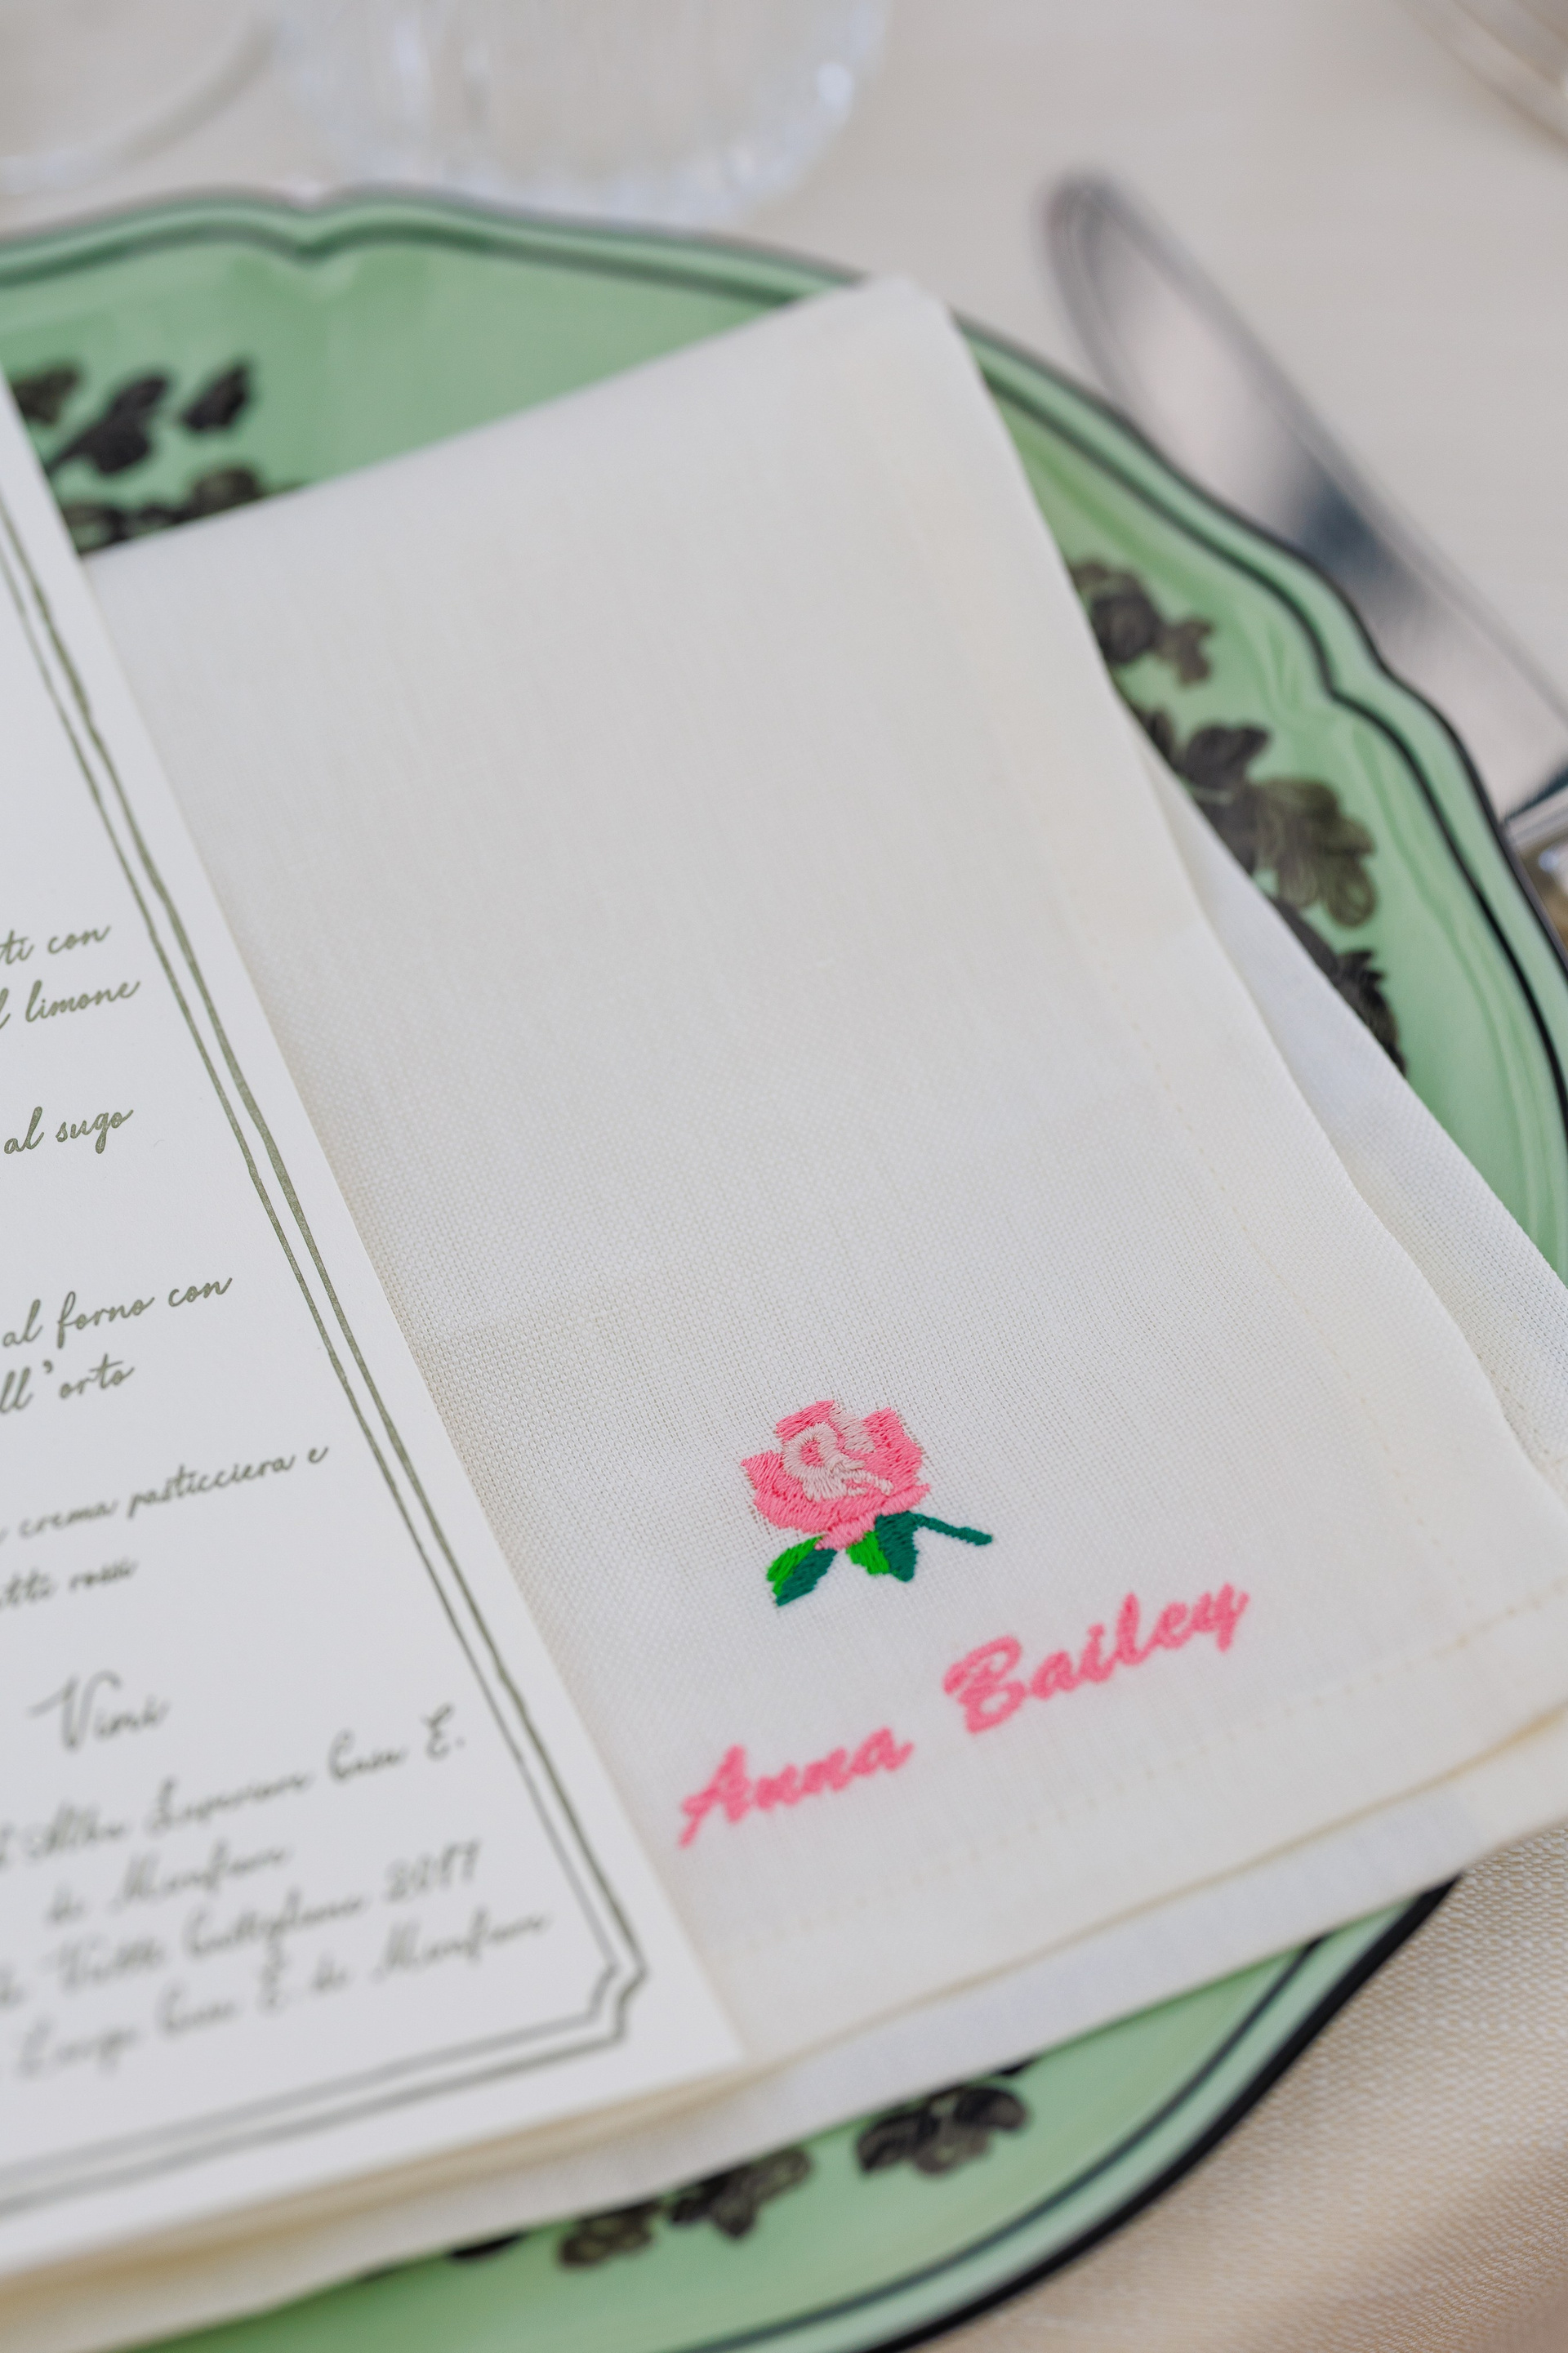 ti con
l limone
al sugo
al forno con
ll'orto
crema pasticciera e
tti rossi
Vini
Alba Superiore Casa E.
di Mirafiore
2017
Langa Casa E. di Mirafiore
Anna Bailey